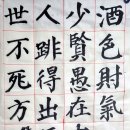 酒色財氣
少賢愚在
人跳得出
世不死方